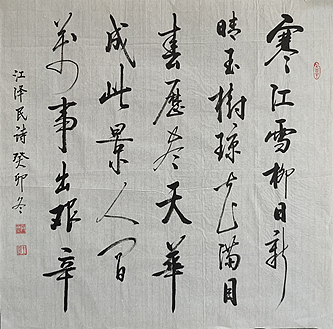 寒江雪柳日新
晴玉樹琼花滿目
春歷尽天華
成此景人间
萬事出艰辛
江泽民詩癸卯冬